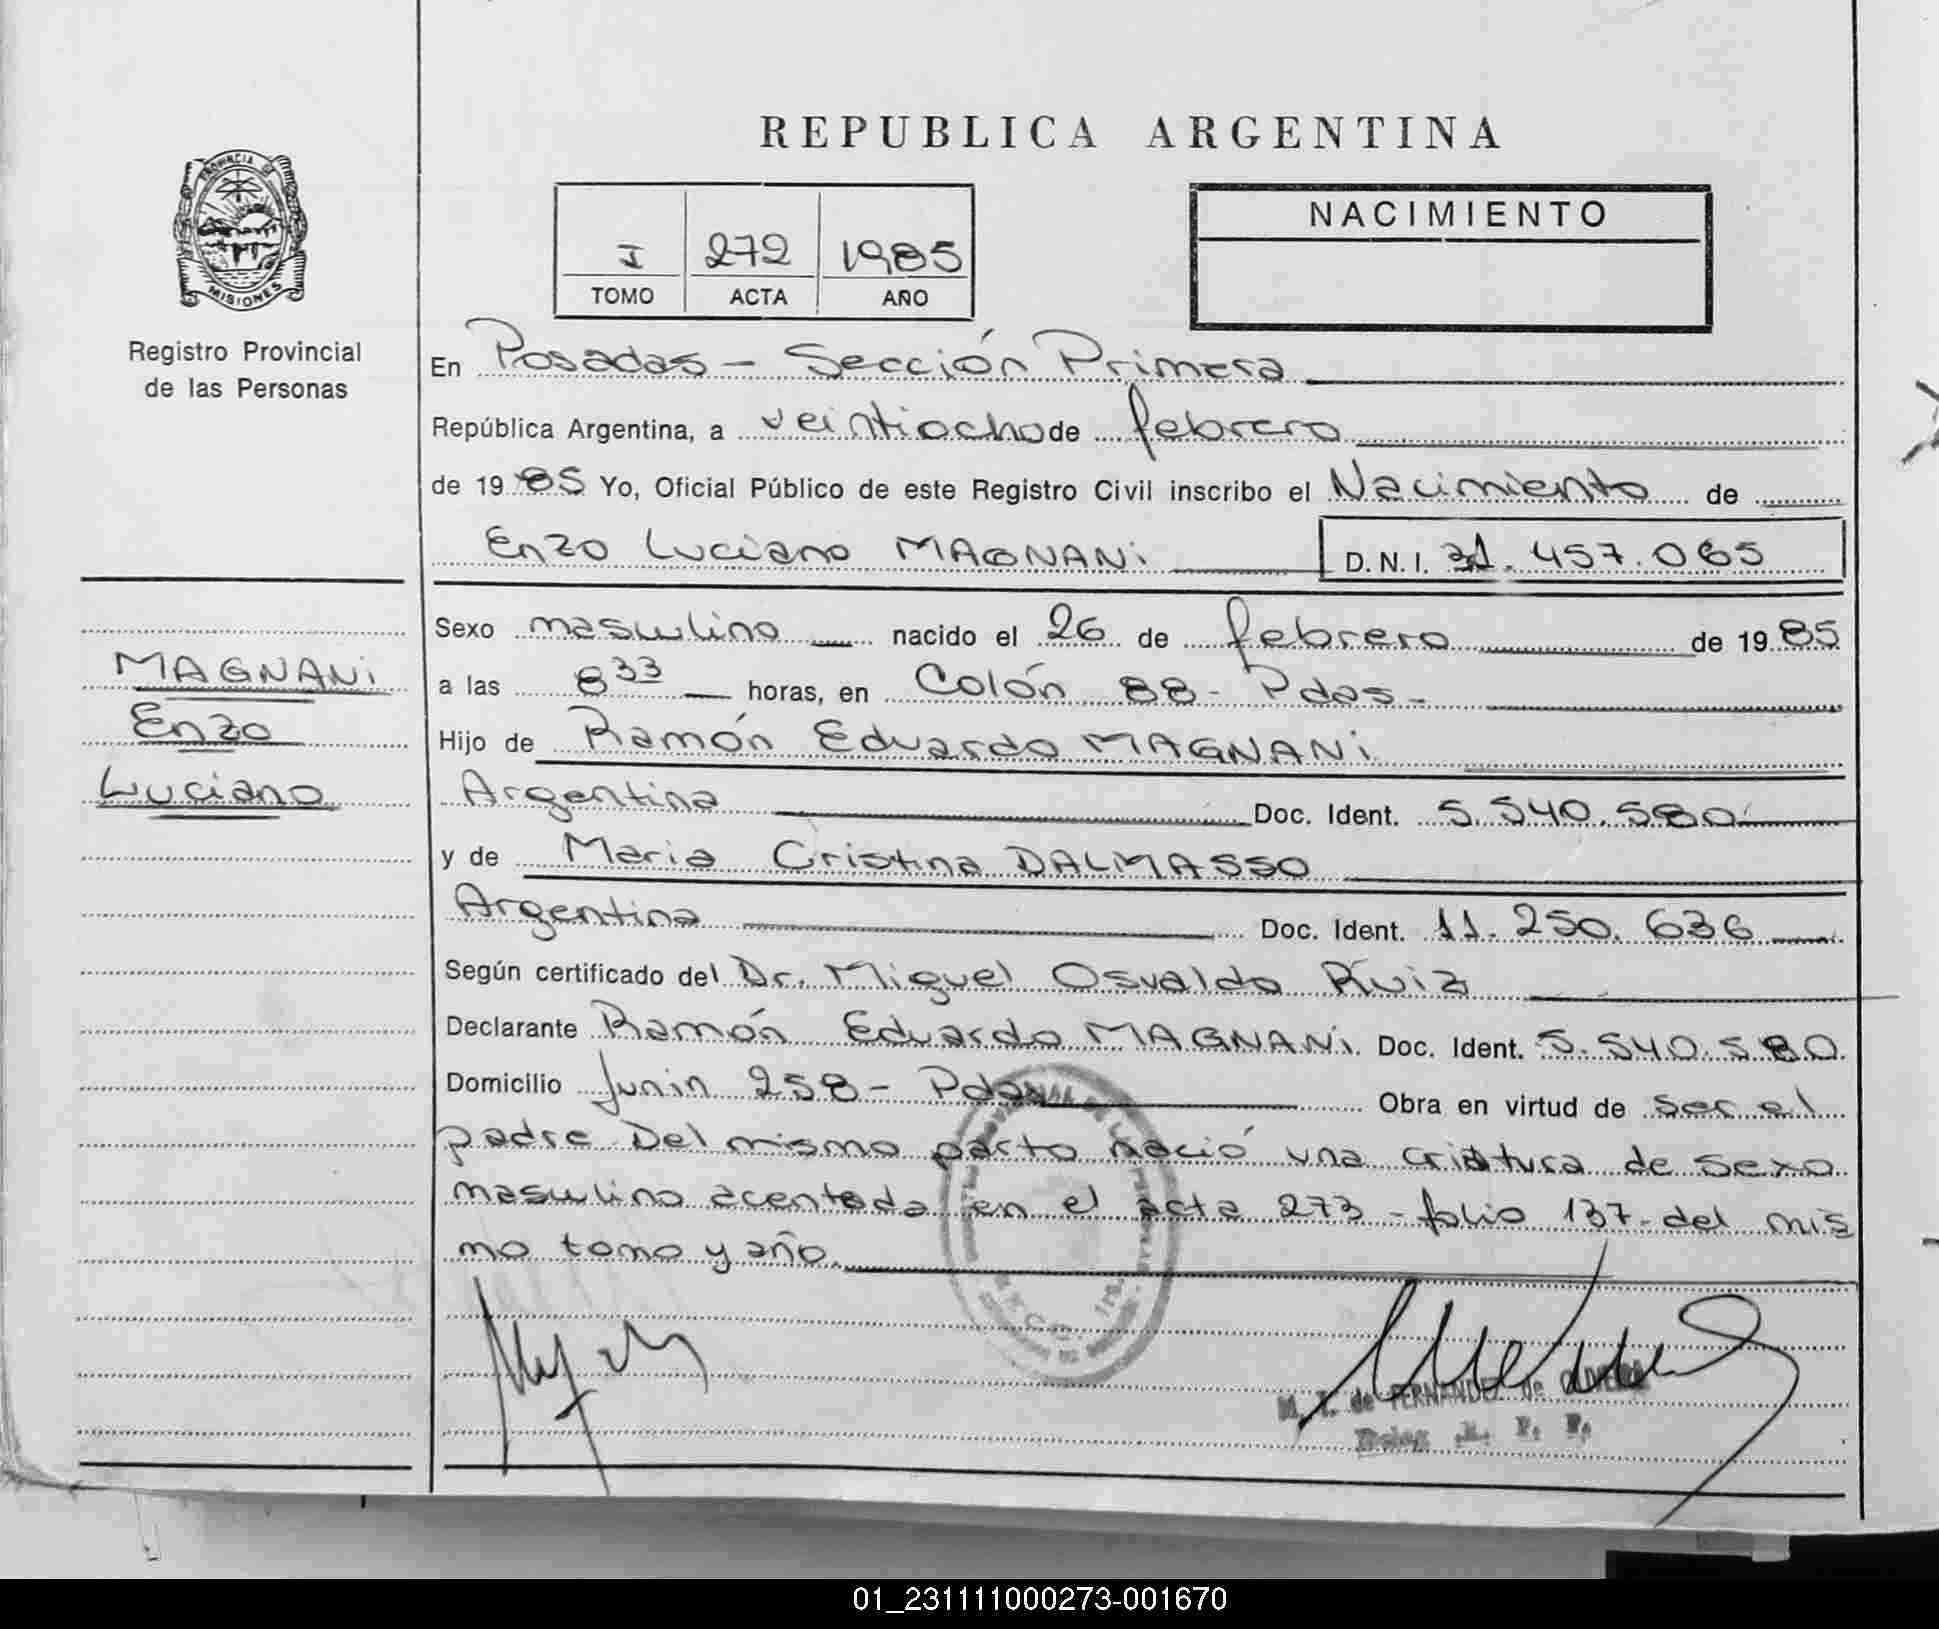 REPUBLICA ARGENTINA
PROVINCIA DE
MISIONES
Registro Provincial
de las Personas
I 272 1985
TOMO ACTA AÑO
NACIMIENTO
En Posadas - Sección Primera
República Argentina, a veintiocho de febrero
de 1985 Yo, Oficial Público de este Registro Civil inscribo el Nacimiento de
Enzo Luciano MAGNANi D.N.I. 31.457.065
MAGNANi
Enzo
Luciano
Sexo masculino nacido el 26 de febrero de 1985
a las 8 33 horas, en Colón 88 - Pdas -
Hijo de Ramón Eduardo MAGNANi
Argentina Doc. Ident. 5.540.580
y de Maria Cristina DALMASSO
Argentina Doc. Ident. 11.250.636
Según certificado del Dr. Miguel Osvaldo Ruiz
Declarante Ramón Eduardo MAGNANi Doc. Ident. 5.540.580
Domicilio Junin 258 - Pdas Obra en virtud de ser el
padre Del mismo parto nació una criatura de sexo
masculino acentada en el acta 273 - folio 137 - del mis
mo tomo y año.
M. I. de FERNANDEZ de OLIVERA
01_231111000273-001670